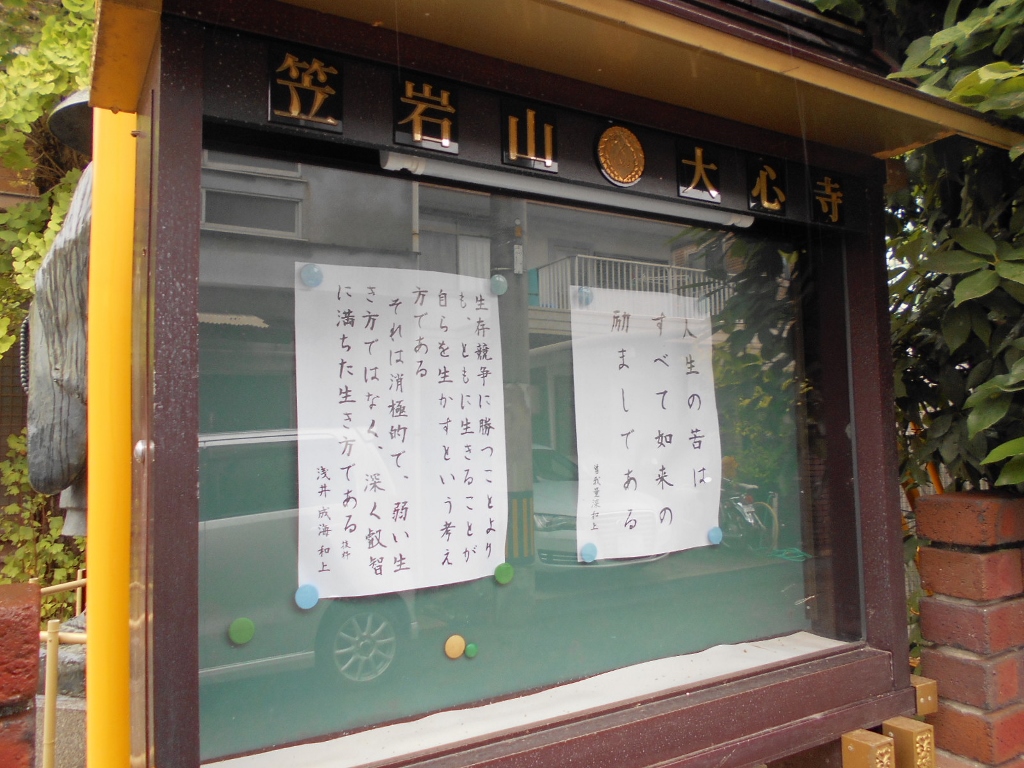 笠岩山 大心寺
人生の苦は
すべて如来の
励ましである
生存競争に勝つことより
も、ともに生きることが
自らを生かすという考え
方である
それは消極的で、弱い生
き方ではなく、深く叡智
に満ちた生き方である
浅井成海和上